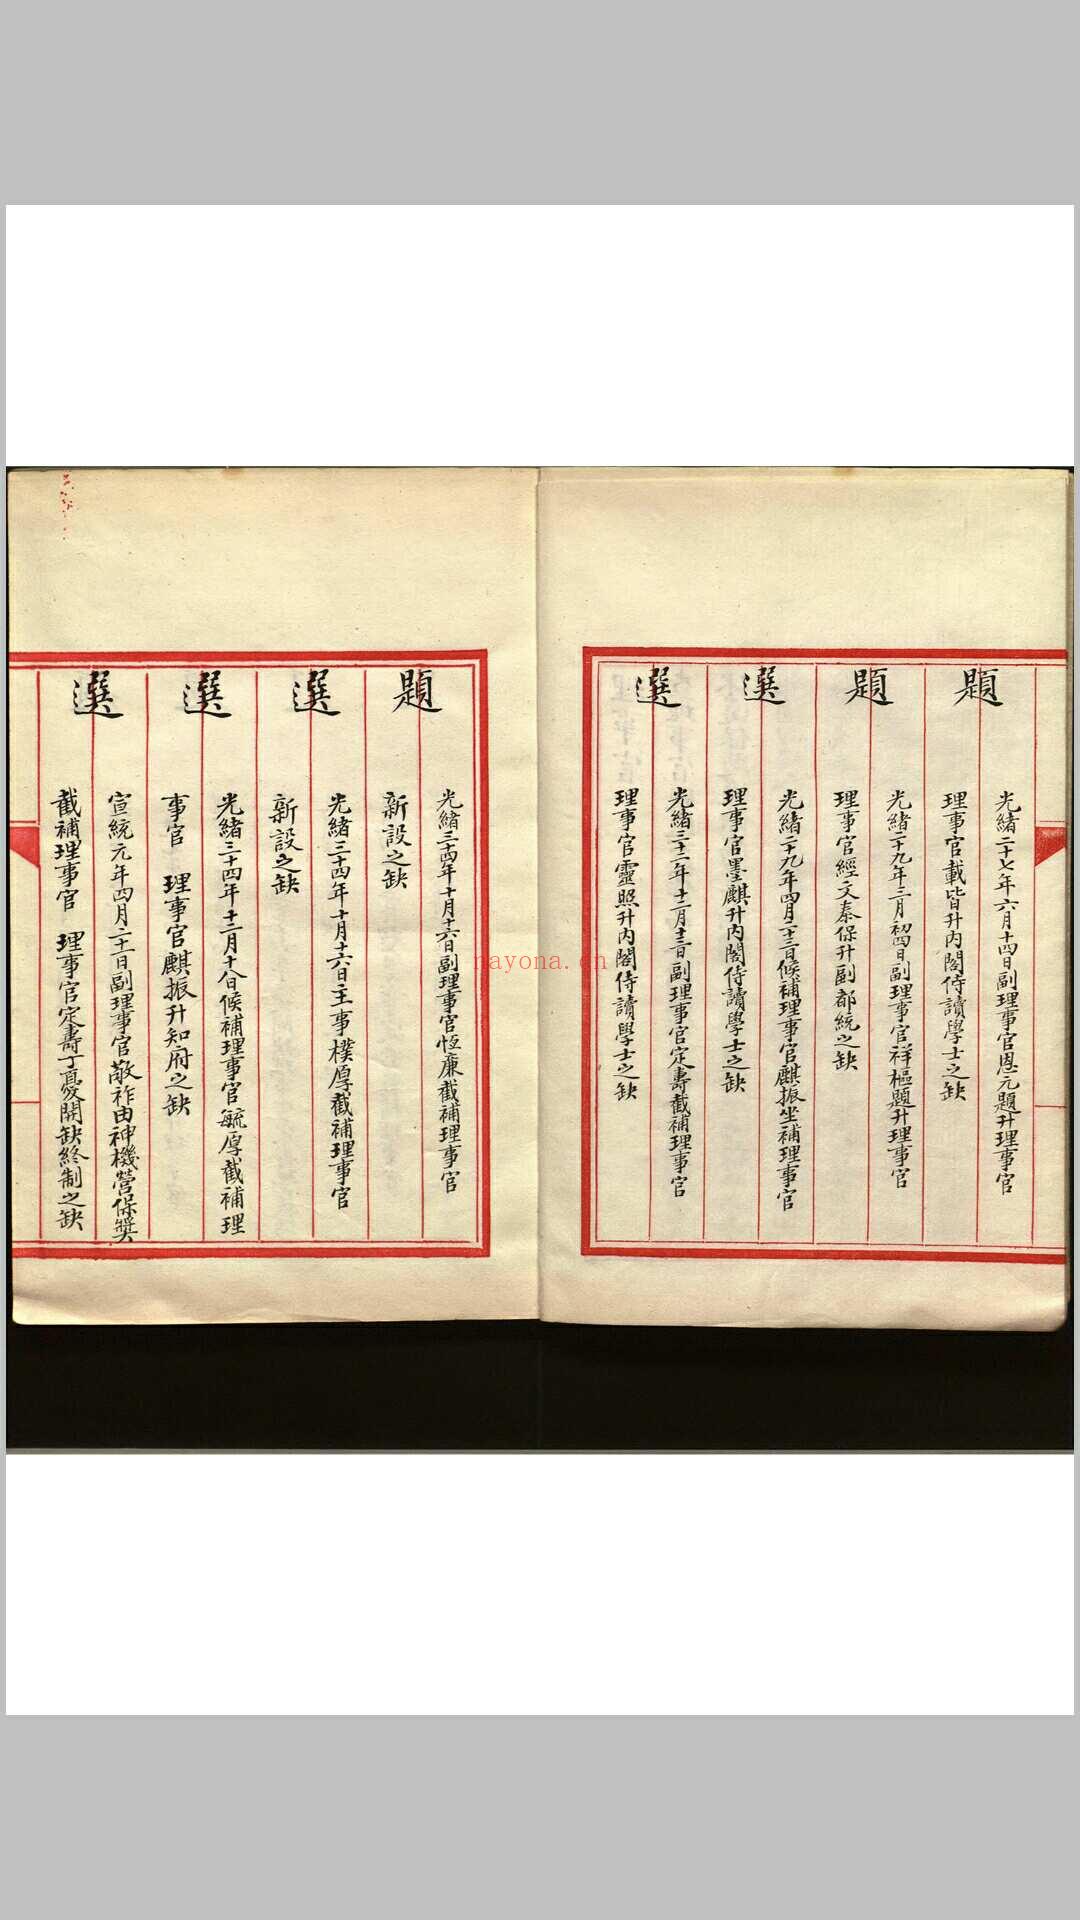 題
光緒二十七年六月十四日副理事官恩元題升理事官
理事官載皆升内閣侍讀學士之缺
題
光緒二十九年三月初四日副理事官祥樞題升理事官
理事官經文泰保升副都統之缺
選
光緒二十九年四月二十三日候補理事官麒振坐補理事官
理事官墨麒升内閣侍讀學士之缺
選
光緒三十二年十二月十三日副理事官定壽截補理事官
理事官靈照升内閣侍讀學士之缺
題
光緒三十四年十月十六日副理事官恆廉截補理事官
新設之缺
選
光緒三十四年十月十六日主事樸厚截補理事官
新設之缺
選
光緒三十四年十二月十八日候補理事官毓厚截補理
事官 理事官麒振升知府之缺
選
宣統元年四月二十一日副理事官敵祚由神機營保獎
截補理事官 理事官定壽丁憂開缺終制之缺
nayona.cn